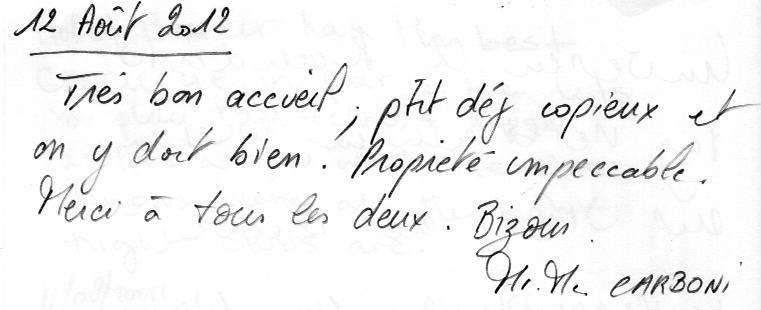 12 Août 2012
Très bon accueil, ptit déj copieux et
on y dort bien. Propreté impeccable.
Merci à tous les deux. Bizous.
Mr. Me CARBONI